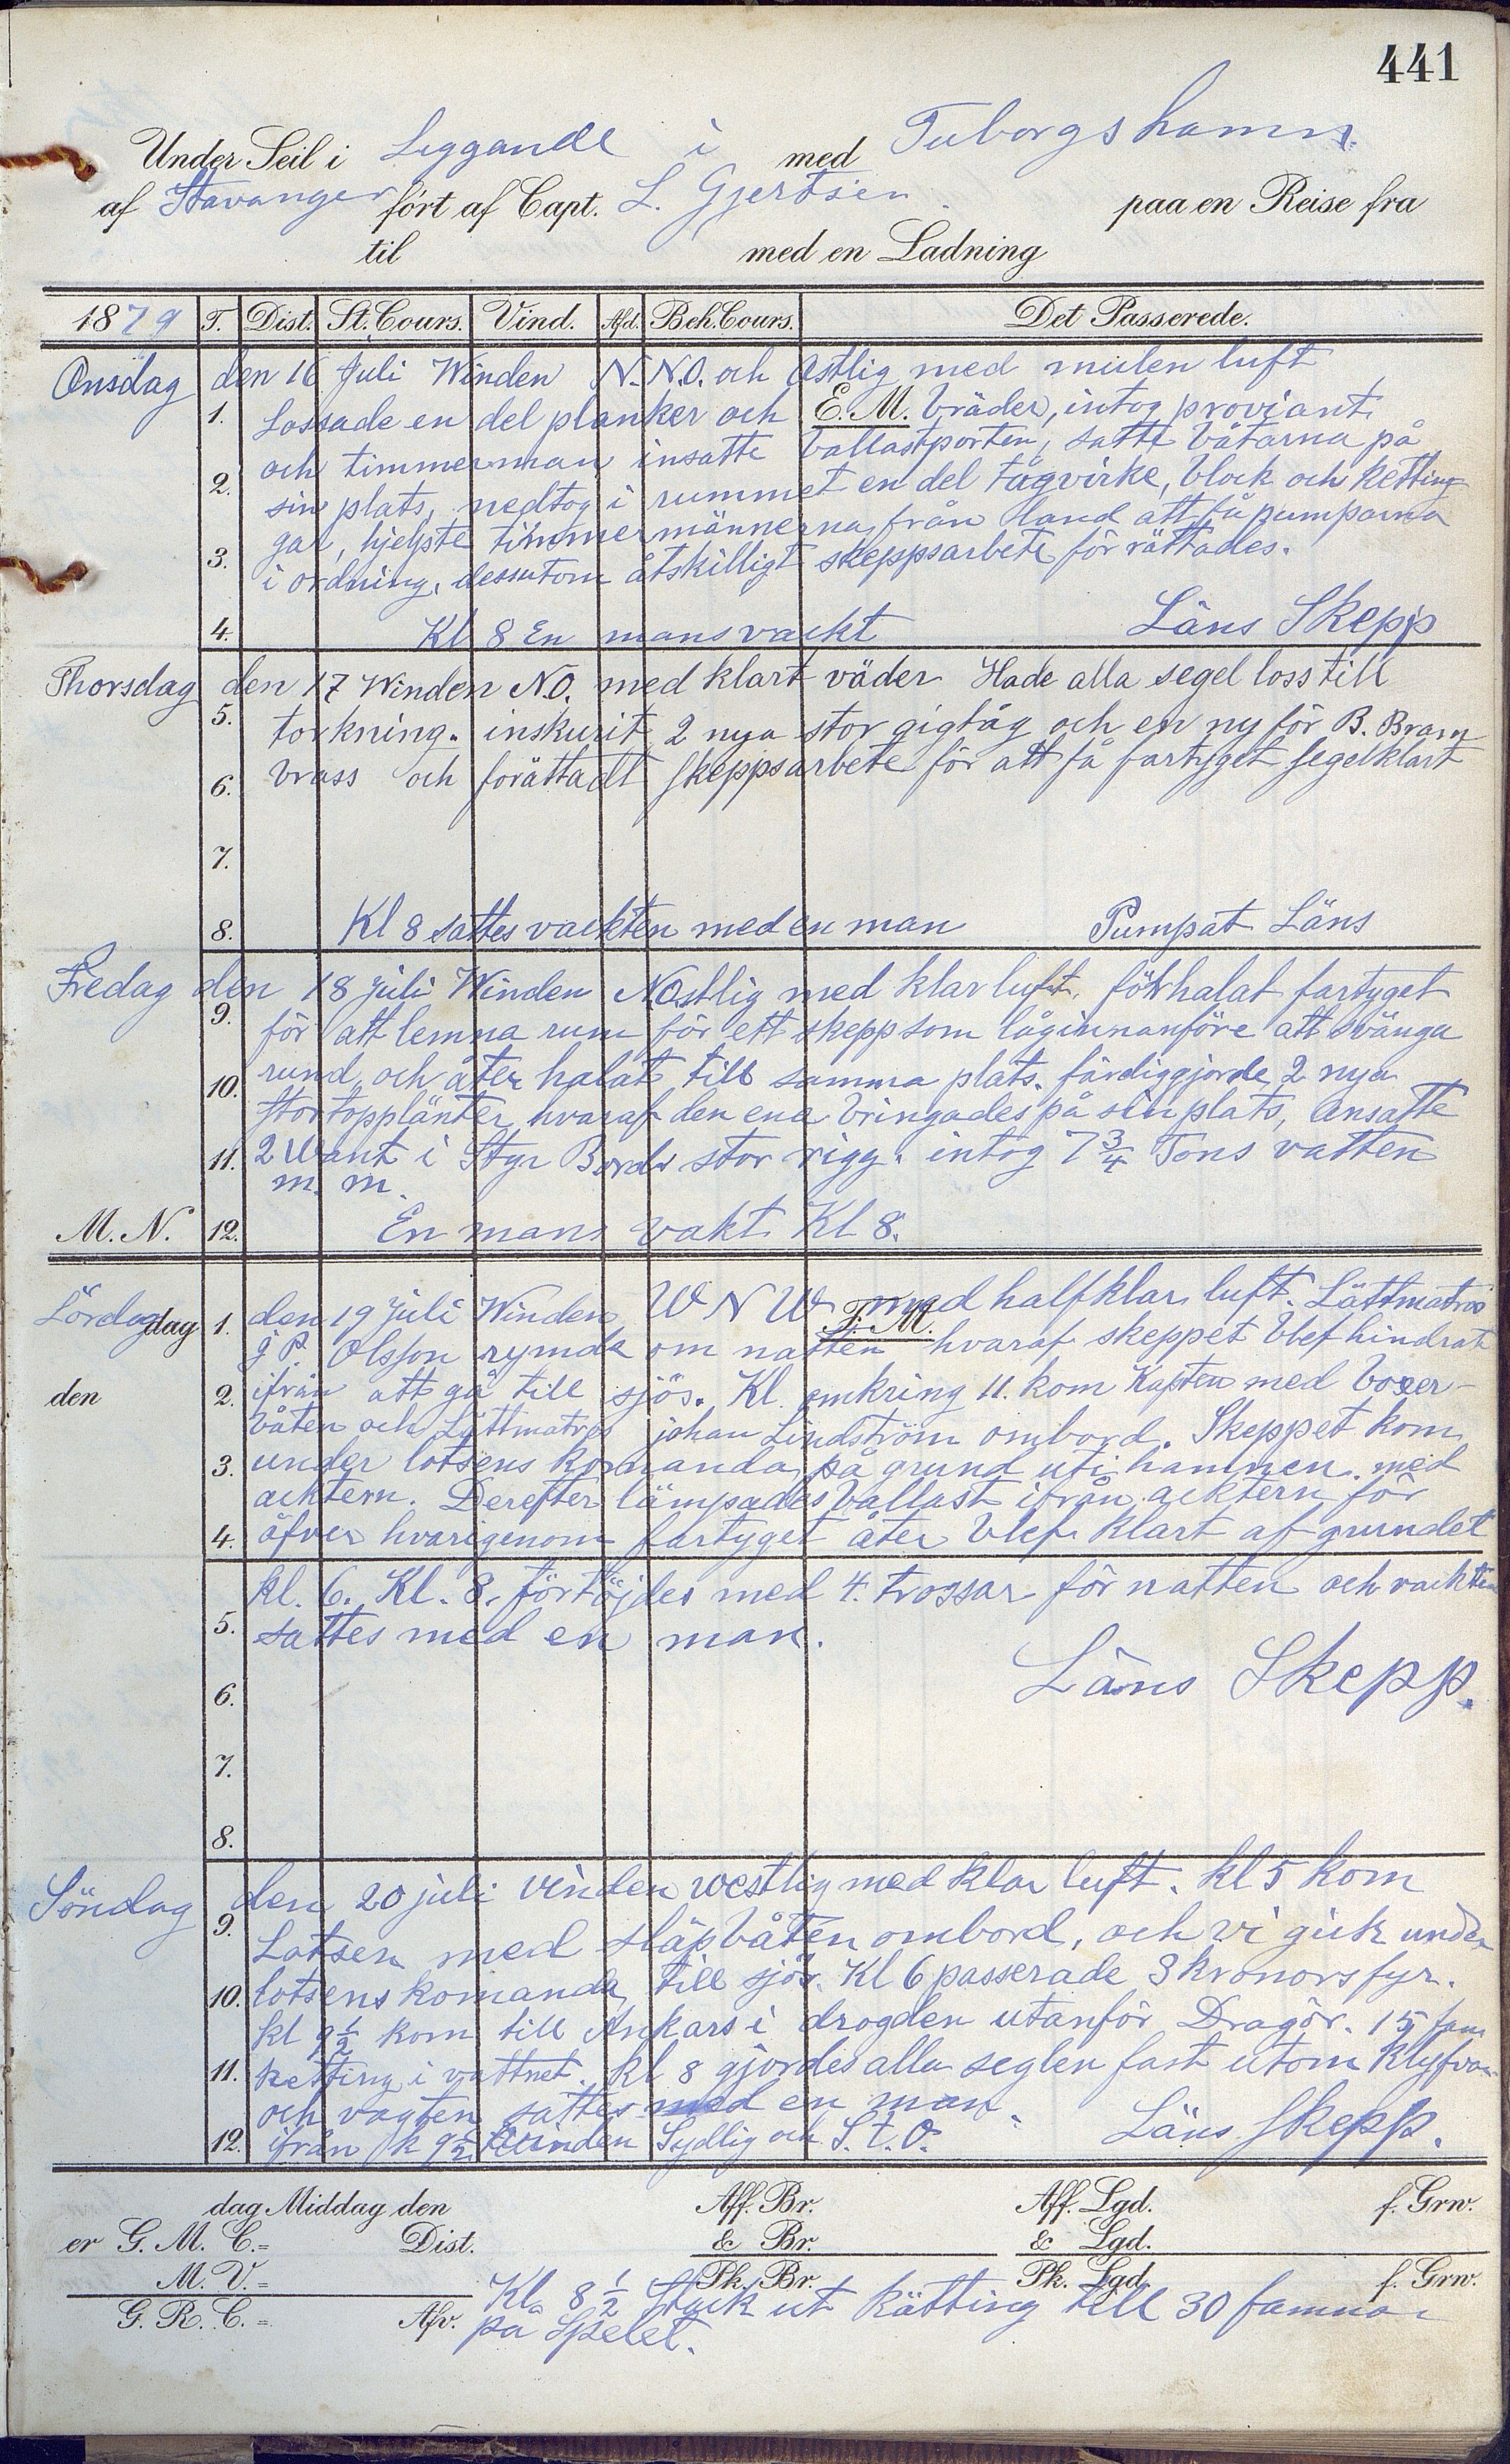 441
Under Seil i Liggande i med Tuborgs hamn.
af Stavanger ført af Capt. L. Gjertsen. paa en Reise fra
til med en Ladning
1879 T. Dist. St. Cours. Vind. Afd. Beh. Cours. Det Passerede.
Onsdag den 16 Juli Winden N.N.O. och Ostlig med mulen luft
E. M.
1. Lossade en del planker och bräder, intog proviant
och timmerman insatte ballastporten, satte båtarna på
2. sin plats, nedtog i rummet en del tågvirke, block och ketting
gar, hjelpte timmermännerna från land att få pumparna
3. i ordning, dessutom åtskilligt skeppsarbete förrättades.
4. Kl 8 En mans vackt Läns Skepp
Thorsdag den 17 Winden N.O. med klart väder Hade alla segel loss till
5. torkning. inskurit 2 nya stor gigtåg och en ny för B. Bram
6. brass och forättadt skeppsarbete för att få fartyget segelklart
7.
8. Kl 8 sattes vackten med en man Pumpat Läns
Fredag den 18 juli Winden NOstlig med klar luft, förhalat fartyget
9. för att lemna rum för ett skepp som låg innanföre att svänga
10. rund, och åter halat till samma plats. färdiggjorde 2 nya
stortopplänter hvaraf den ena bringades på sin plats, Ansatte
11. 2 Want i Styr Bords stor rigg. intog 7 3/4 Tons vatten
m. m.
M. N. 12. En mans vakt Kl 8.
Lördag dag 1. den 19 juli Winden W N W med halfklar luft. Lättmatros
F. M.
j P. Olsson rymde om natten hvaraf skeppet blef hindrat
den 2. ifrån att gå till sjös. Kl. omkring 11. kom Kapten med boxer-
båten och Lättmatros johan Lindström ombord. Skeppet kom
3. under lotsens komando på grund uti hamnen med
acktern. Derefter lämpades ballast ifrån acktern för
4. öfver hvarigenom fartyget åter blef klart af grundet
kl. 6. Kl. 8. förtöjdes med 4. trossar för natten och vackten
5. sattes med en man.
Läns Skepp.
6.
7.
8.
Söndag den 20 juli vinden westlig med klar luft. kl 5 kom
9. Lotsen med släpbåten ombord, och vi gick under
10. lotsens komando till sjös. Kl 6 passerade 3 kronors fyr.
kl 9 1/2 kom till Ankars i drogden utanför Dragör. 15 fam
11. ketting i vattnet. kl 8 gjordes alla seglen fast utom Klyfvan
och vagten sattes med en man. Läns Skepp.
12. ifrån k 9 1/2 Winden Sydlig och S.t.O.
dag Middag den Aff. Br. Aff. Lgd. f. Grw.
er G. M. C.= Dist. & Br. & Lgd.
M. V.= Pk. Br. Pk. Lgd. f. Grw.
G. R. C.= Afv.
Kl. 8 1/2 Stack ut kätting till 30 famnar
på Spelet.